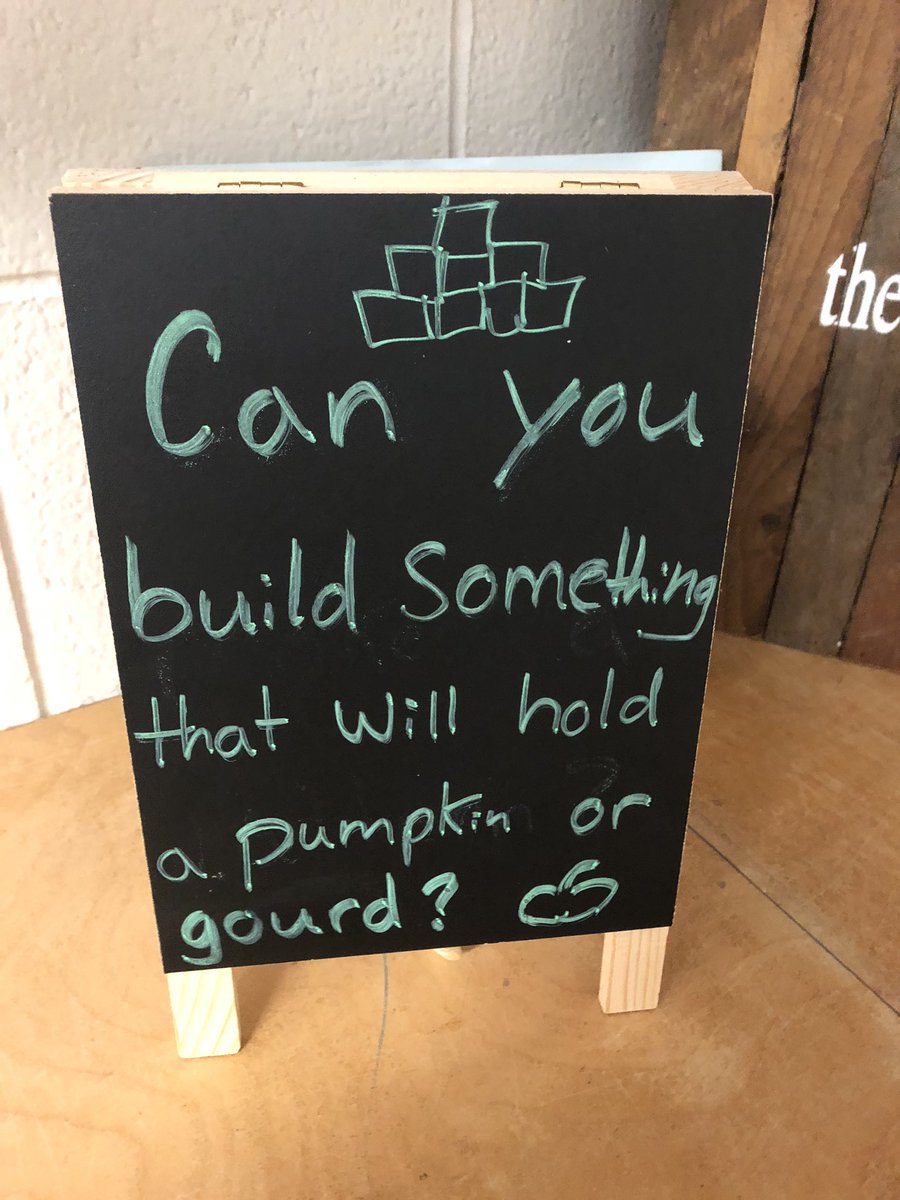 Can you
build something
that will hold
a pumpkin or
gourd?
the